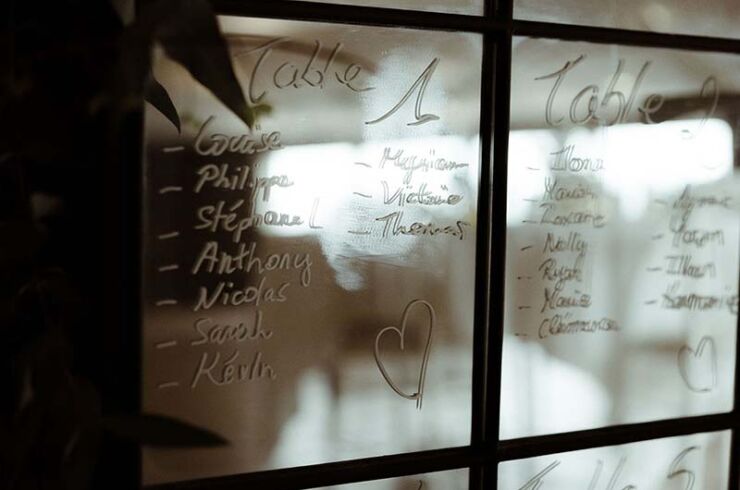 Table 1
- Louise
- Philippe
- Stéphane L
- Anthony
- Nicolas
- Sarah
- Kévin
- Myriam
- Victoire
- Thomas
Table 2
- Ilona
- Marion
- Roxane
- Nelly
- Ryan
- Marie
- Yassin
- Ilhan
Table